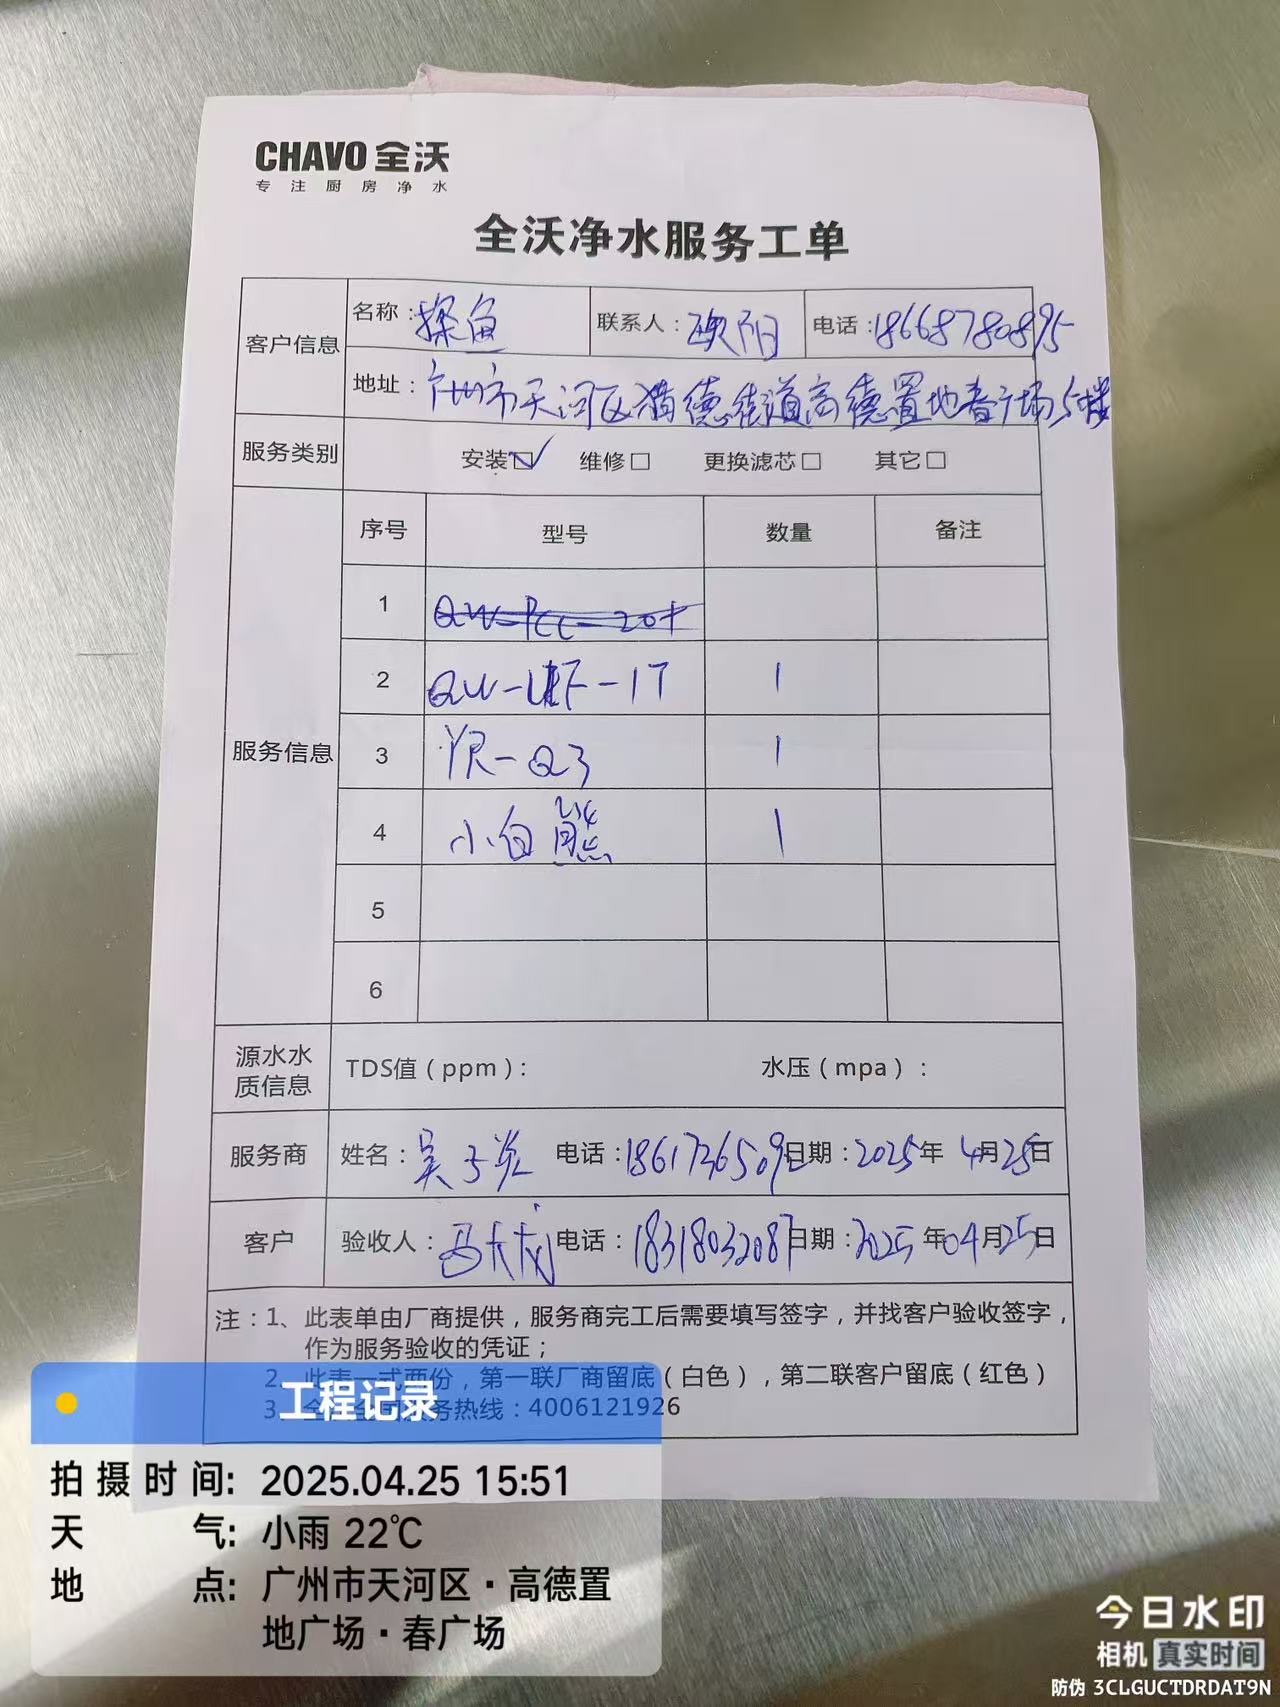 CHAVO 全沃
专注厨房净水
全沃净水服务工单
客户信息
名称：探鱼 联系人：欧阳 电话：18668780895
地址：广州市天河区猎德街道高德置地春广场5楼
服务类别 安装☑ 维修□ 更换滤芯□ 其它□
服务信息
序号 型号 数量 备注
1
2 QW-UF-1T 1
3 YR-Q3 1
4 小白熊 1
5
6
源水水质信息 TDS值（ppm）： 水压（mpa）：
服务商 姓名：吴子 电话：18617365092 日期：2025年 4月25日
客户 验收人：马 电话：18318032087 日期：2025年04月25日
注：1、此表单由厂商提供，服务商完工后需要填写签字，并找客户验收签字，
作为服务验收的凭证；
2、此表一式两份，第一联厂商留底（白色），第二联客户留底（红色）
3 服务热线：4006121926
工程记录
拍摄时间：2025.04.25 15:51
天气：小雨 22℃
地点：广州市天河区·高德置
地广场·春广场
今日水印
相机 真实时间
防伪 3CLGUCTDRDAT9N